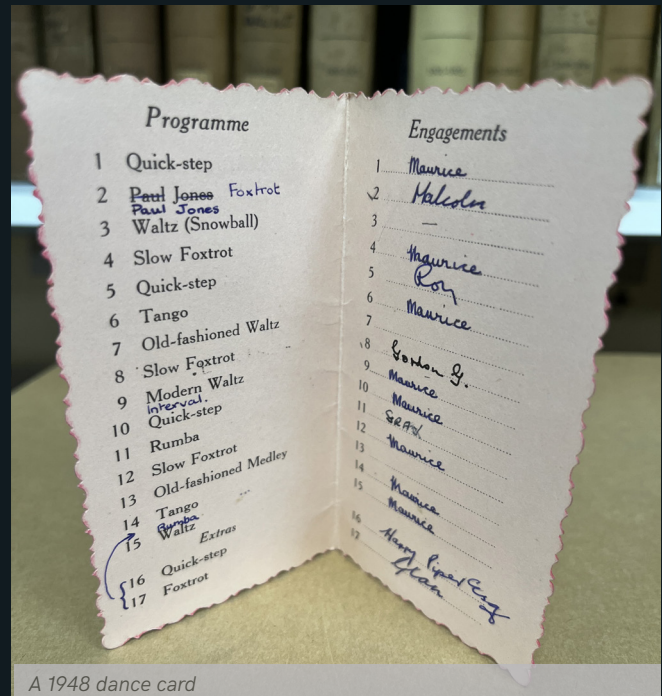 Programme
1 Quick-step
2 Paul Jones Foxtrot
Paul Jones
3 Waltz (Snowball)
4 Slow Foxtrot
5 Quick-step
6 Tango
7 Old-fashioned Waltz
8 Slow Foxtrot
9 Modern Waltz
Interval.
10 Quick-step
11 Rumba
12 Slow Foxtrot
13 Old-fashioned Medley
14 Tango
Rumba
15 Waltz
Extras
16 Quick-step
17 Foxtrot
Engagements
1 Maurice
2 Malcolm
3 —
4 Maurice
5 Roy
6 Maurice
7
8 Gordon G.
9 Maurice
10 Maurice
11
12 Maurice
13
14 Maurice
15 Maurice
16 Harry Piper Esq
17
A 1948 dance card